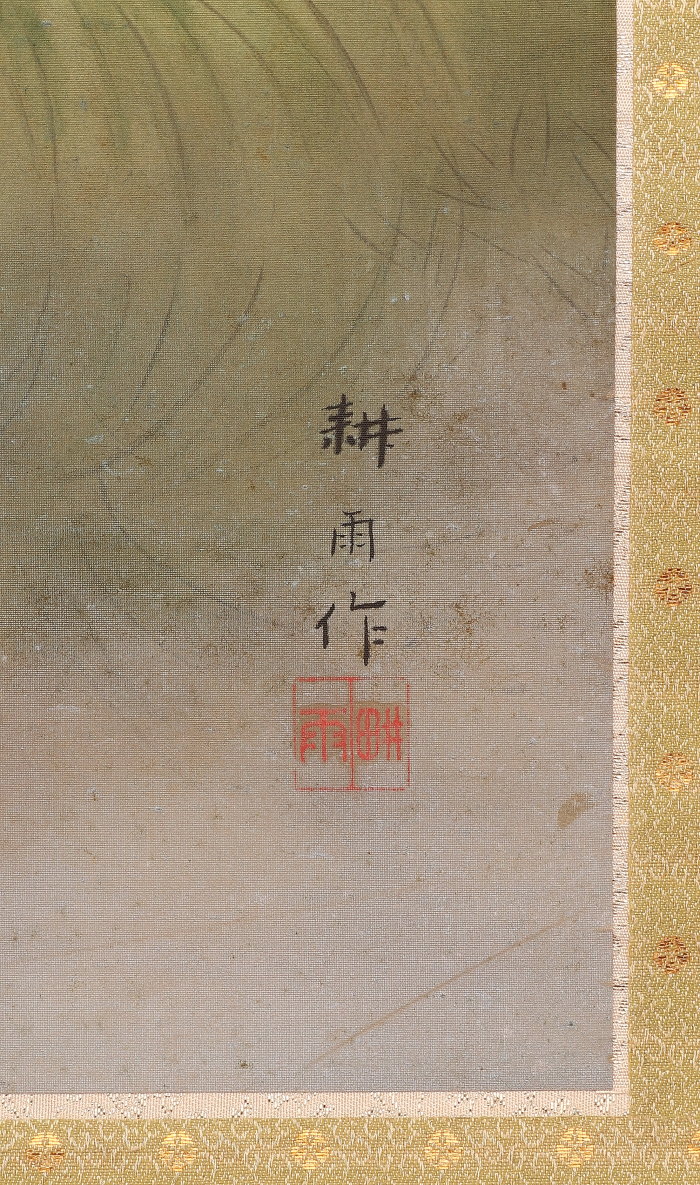 耕雨作
畊雨